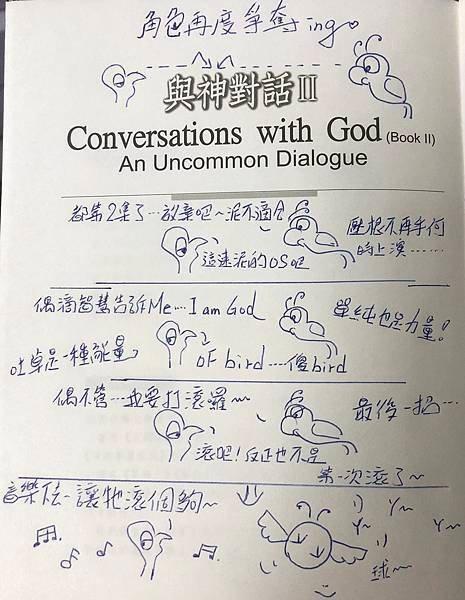 角色再度爭奪ing。
與神對話II
Conversations with God (Book II)
An Uncommon Dialogue
都第2集了…放棄吧~泥不適合
壓根不再乎何
時上演……
這速泥的OS吧
偶滴智慧告訴Me…I am God
單純也是力量!
吐草是一種能量
OF bird……傻bird
偶不管…我要打滾囉~~
最後一招…
滾吧!反正也不是
第一次滾了~
音樂下~讓牠滾個夠~
Y~
Y~
Y~
Y~
球~